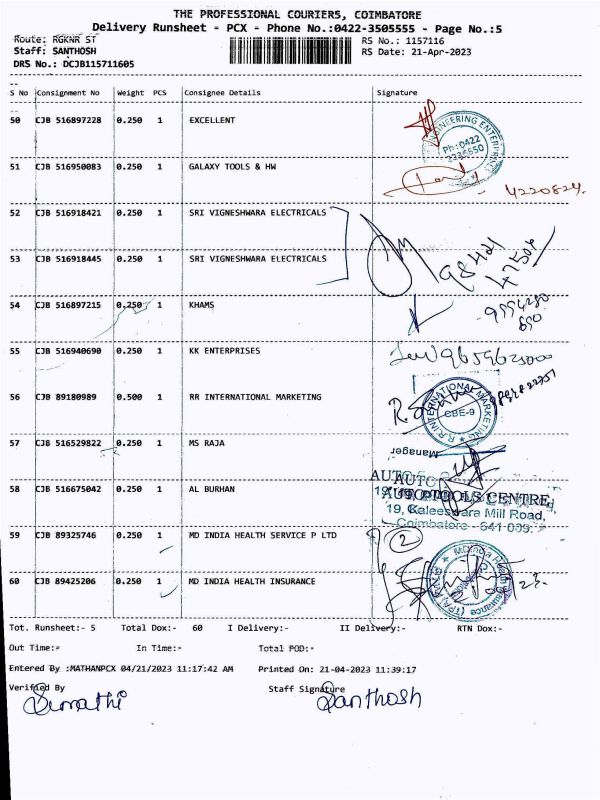 THE PROFESSIONAL COURIERS, COIMBATORE
Delivery Runsheet - PCX - Phone No.:0422-3505555 - Page No.:5
Route: RGKNR ST
RS No.: 1157116
Staff: SANTHOSH
RS Date: 21-Apr-2023
DRS No.: DCJB115711605
S No Consignment No Weight PCS Consignee Details Signature
50 CJB 516897228 0.250 1 EXCELLENT
ENGINEERING ENTERPRISES
Ph:0422
2236650
51 CJB 516950083 0.250 1 GALAXY TOOLS & HW
4220824
52 CJB 516918421 0.250 1 SRI VIGNESHWARA ELECTRICALS
98421
47504
53 CJB 516918445 0.250 1 SRI VIGNESHWARA ELECTRICALS
54 CJB 516897215 0.250 1 KHAMS
55 CJB 516940690 0.250 1 KK ENTERPRISES
56 CJB 89180989 0.500 1 RR INTERNATIONAL MARKETING
R.R.INTERNATIONAL MARKETING
CBE-9
Manager
57 CJB 516529822 0.250 1 MS RAJA
58 CJB 516675042 0.250 1 AL BURHAN
AUTOTOOLS CENTRE,
19, Kaleeswara Mill Road,
Coimbatore - 641 009.
59 CJB 89325746 0.250 1 MD INDIA HEALTH SERVICE P LTD
2
60 CJB 89425206 0.250 1 MD INDIA HEALTH INSURANCE
MDIndia Health Insurance (TPA)
Tot. Runsheet:- 5 Total Dox:- 60 I Delivery:- II Delivery:- RTN Dox:-
Out Time:- In Time:- Total POD:-
Entered By :MATHANPCX 04/21/2023 11:17:42 AM Printed On: 21-04-2023 11:39:17
Verified By Staff Signature
Sumathi Santhosh